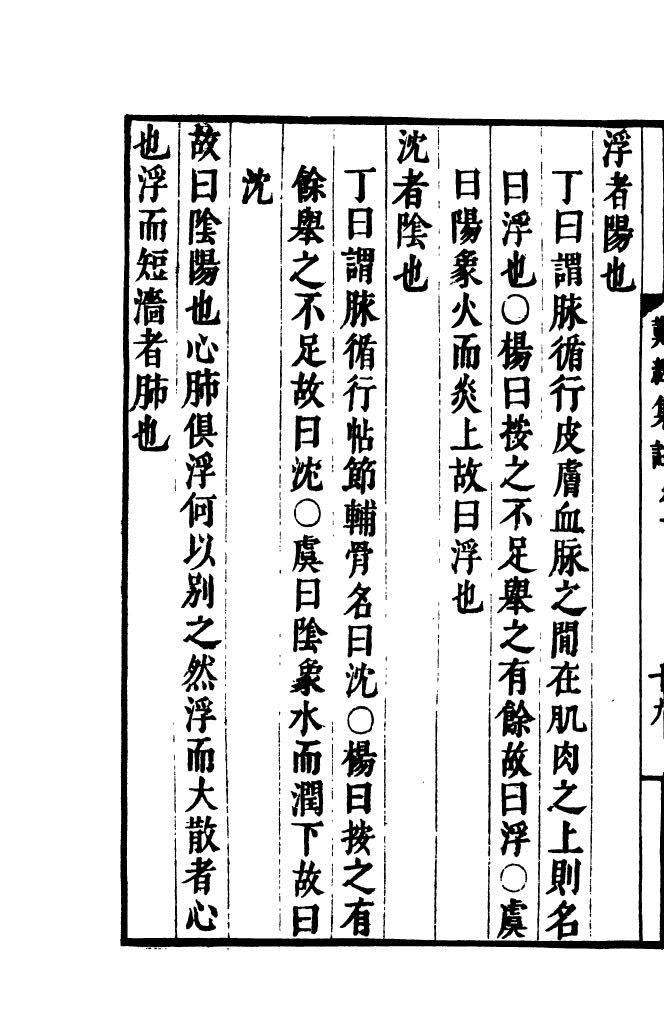 浮者陽也
丁曰謂脉循行皮膚血脉之間在肌肉之上則名
曰浮也○楊曰按之不足舉之有餘故曰浮○虞
曰陽象火而炎上故曰浮也
沈者陰也
丁曰謂脉循行帖節輔骨名曰沈○楊曰按之有
餘舉之不足故曰沈○虞曰陰象水而潤下故曰
沈
故曰陰陽也心肺俱浮何以别之然浮而大散者心
也浮而短濇者肺也